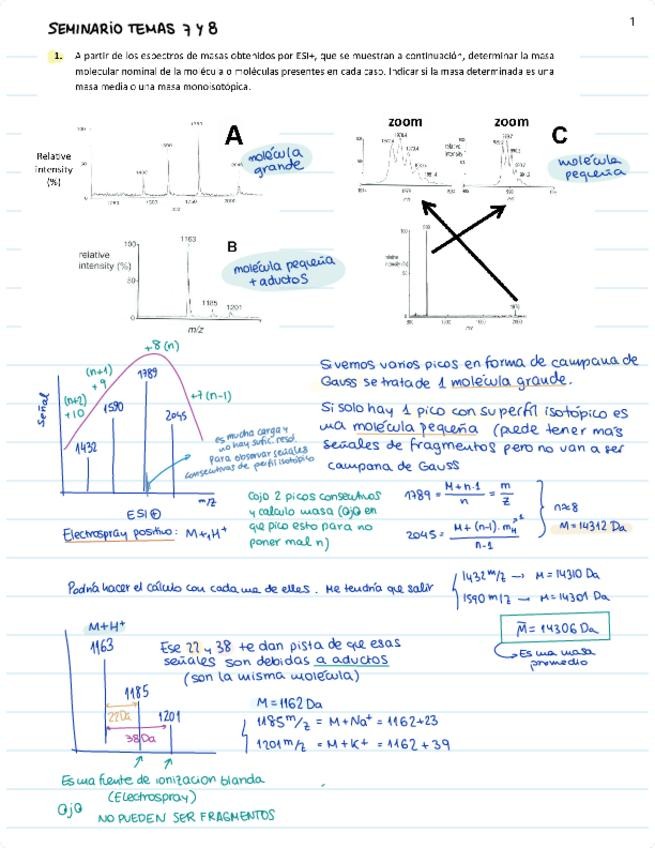 1
SEMINARIO TEMAS 7 Y 8
1. A partir de los espectros de masas obtenidos por ESI+, que se muestran a continuación, determinar la masa
molecular nominal de la molécula o moléculas presentes en cada caso. Indicar si la masa determinada es una
masa media o una masa monoisotópica.
Relative
intensity
(%)
A
molécula
grande
zoom
zoom
C
molécula
pequeña
relative
intensity (%)
100
1163
1185
1201
m/z
B
molécula pequeña
+ aductos
+8 (n)
(n+1)
+9
(n+2)
+10
+7 (n-1)
Señal
1432
1590
1789
2045
m/z
es mucha carga y
no hay sufic. resol.
para observar señales
consecutivas de perfil isotópico
ESI ⊕
Electrospray positivo: M+H⁺
Si vemos varios picos en forma de campana de
Gauss se trata de 1 molécula grande.
Si solo hay 1 pico con su perfil isotópico es
una molécula pequeña (puede tener más
señales de fragmentos pero no van a ser
campana de Gauss
Cojo 2 picos consecutivos
y calculo masa (Ojo en
que pico esto para no
poner mal n)
1789 = M+n·1 / n = m / z
2045 = M+(n-1)·m_H / n-1
n≈8
M = 14312 Da
Podría hacer el cálculo con cada una de ellas. Me tendría que salir
1432 m/z → M = 14310 Da
1590 m/z → M = 14301 Da
M̄ = 14306 Da
Es una masa
promedio
M+H⁺
1163
1185
1201
22Da
38Da
Ese 22 y 38 te dan pista de que esas
señales son debidas a aductos
(son la misma molécula)
M = 1162 Da
1185 m/z = M+Na⁺ = 1162+23
1201 m/z = M+K⁺ = 1162+39
Es una fuente de ionización blanda
(Electrospray)
Ojo NO PUEDEN SER FRAGMENTOS